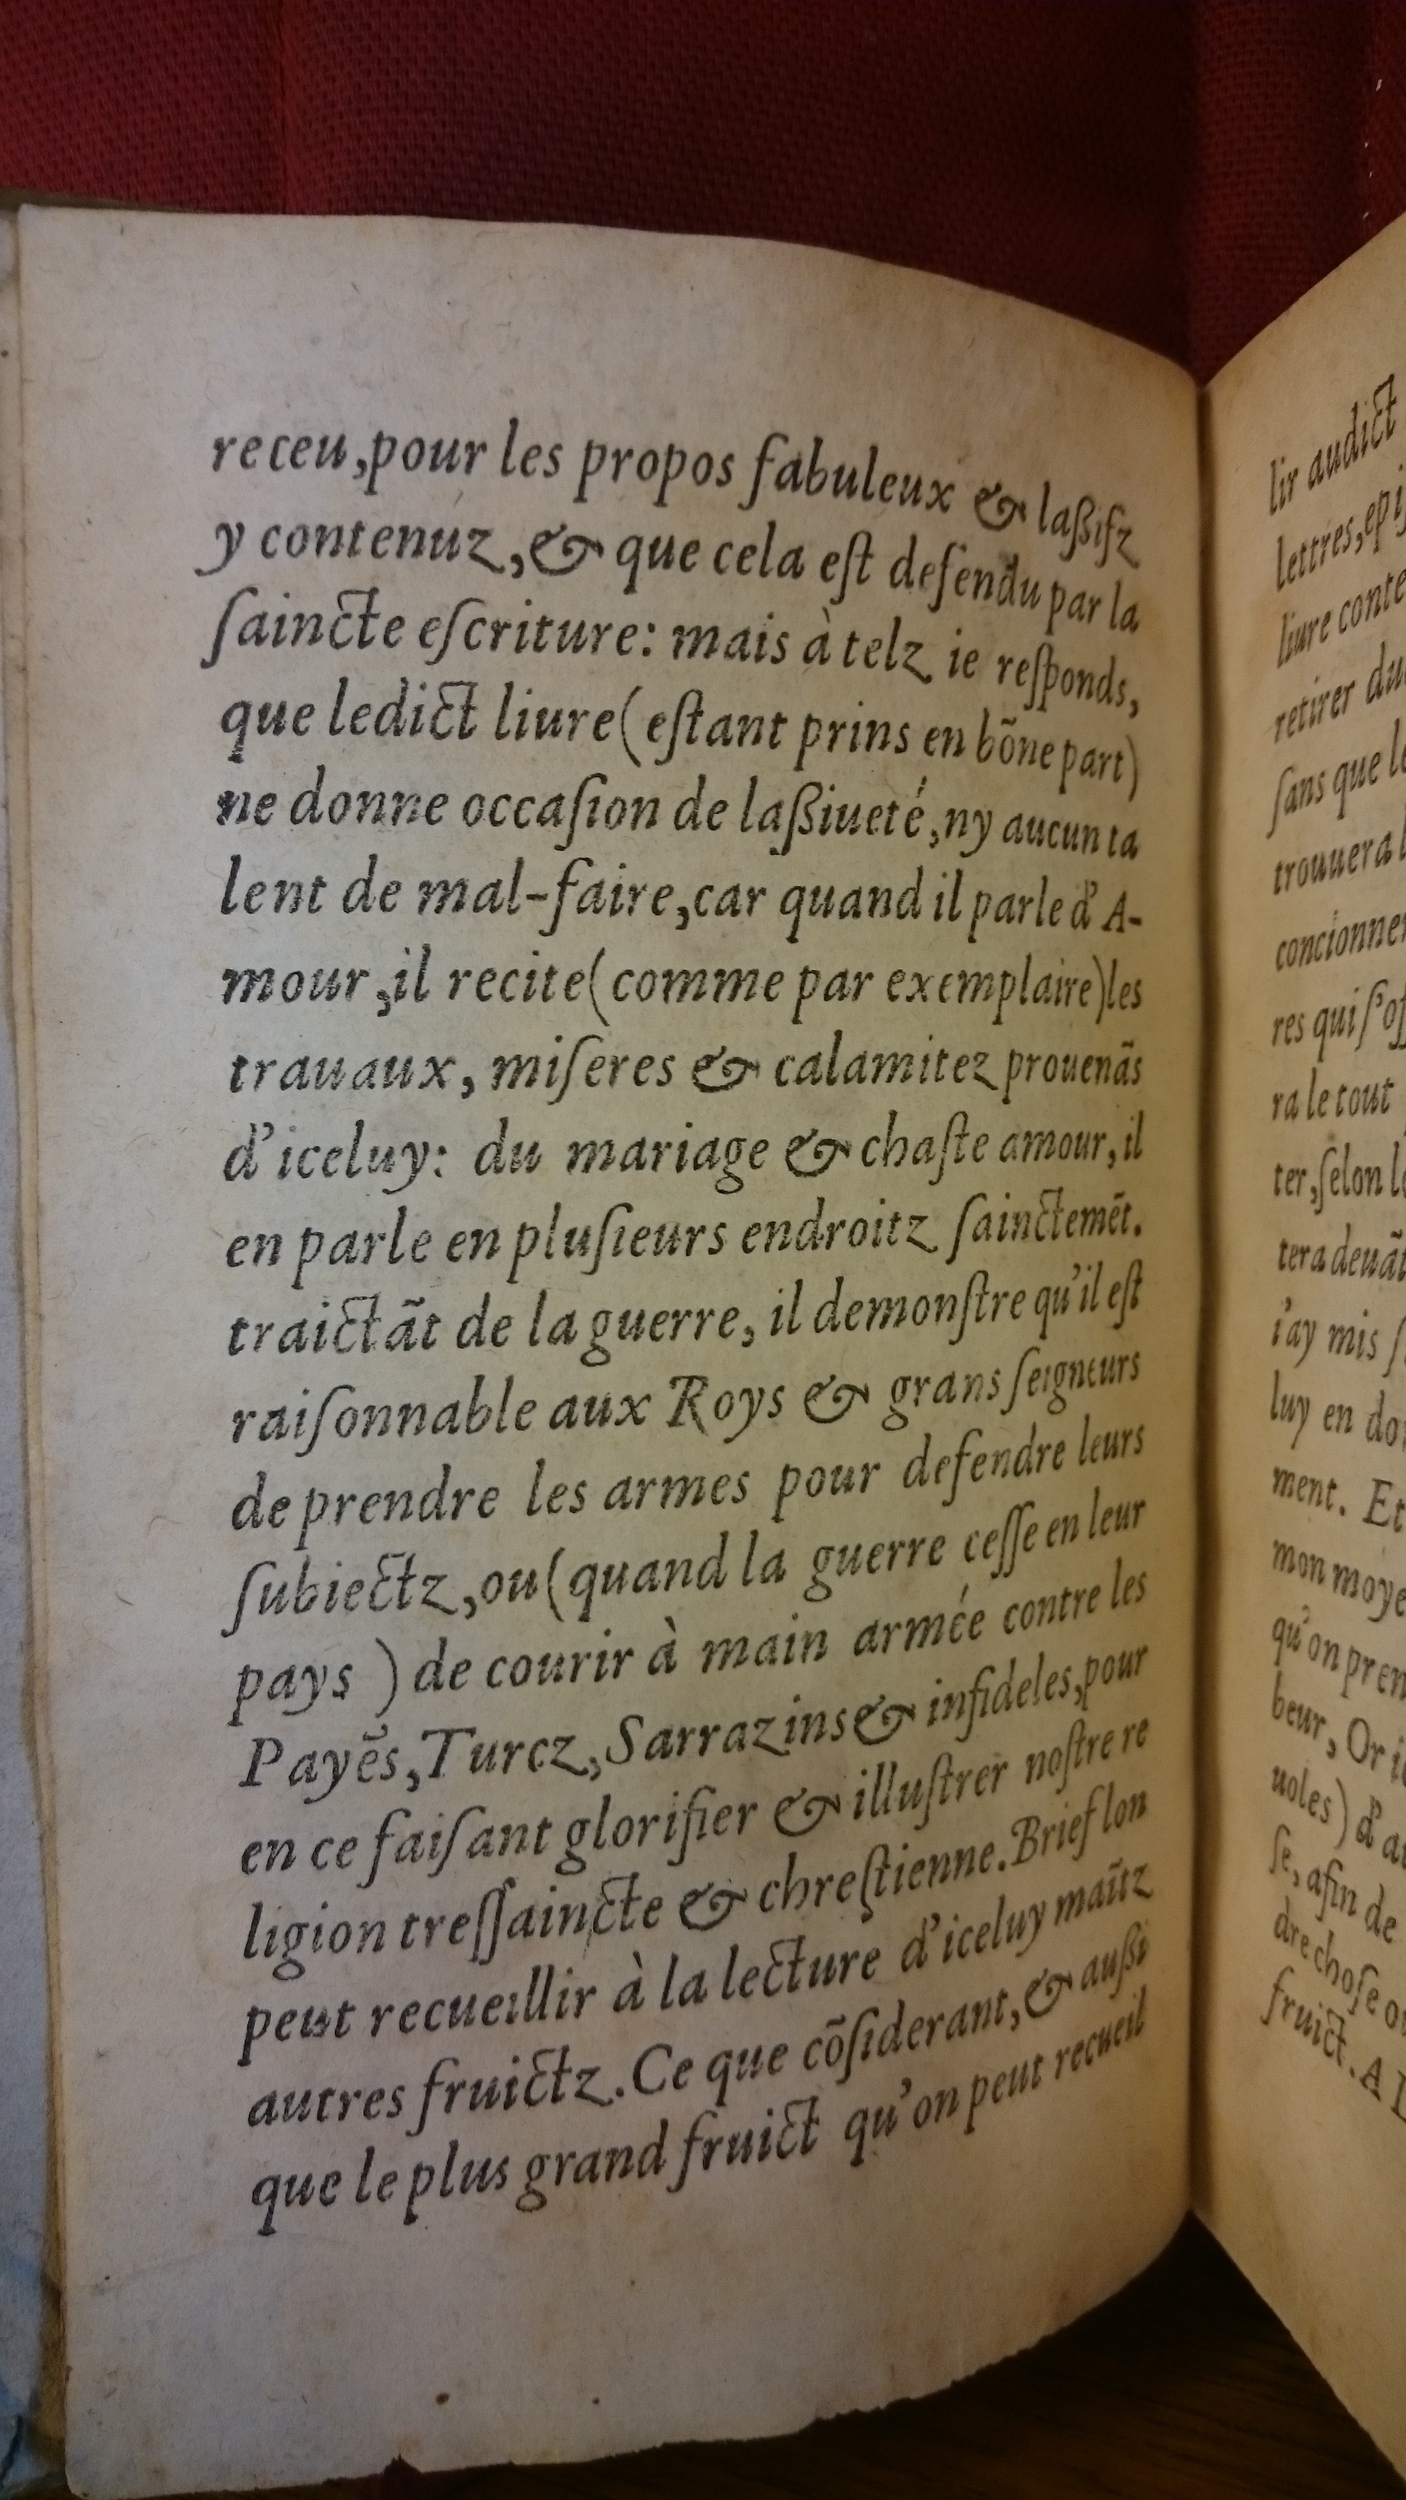 receu,pour les propos fabuleux & laßifz
y contenuz,& que cela eſt defendu par la
ſaincte eſcriture: mais à telz ie reſponds,
que ledict liure( eſtant prins en bõne part)
ne donne occaſion de laßiueté,ny aucun ta
lent de mal-faire,car quand il parle d'A-
mour,il recite( comme par exemplaire)les
trauaux, miſeres & calamitez prouenãs
d'iceluy: du mariage & chaſte amour,il
en parle en pluſieurs endroitz ſainctemẽt.
traictãt de la guerre, il demonſtre qu'il eſt
raiſonnable aux Roys & grans ſeigneurs
de prendre les armes pour defendre leurs
ſubiectz,ou( quand la guerre ceſſe en leur
pays ) de courir à main armée contre les
Payẽs,Turcz,Sarrazins& infideles,pour
en ce faiſant glorifier & illuſtrer noſtre re
ligion treſſaincte & chreſtienne.Brief lon
peut recueillir à la lecture d'iceluy maĩtz
autres fruictz.Ce que cõſiderant,& außi
que le plus grand fruict qu'on peut recueil
lir audict
lettres,epi
liure conte
retirer du
ſans que le
trouuera l
concionner
res qui ſ'of
ra le tout
ter,ſelon l
tera deuãt
i'ay mis ſ
luy en do
ment. Et
mon moye
qu'on pren
beur, Or i
uoles) d'a
ſe, afin de
dre choſe o
fruict. A